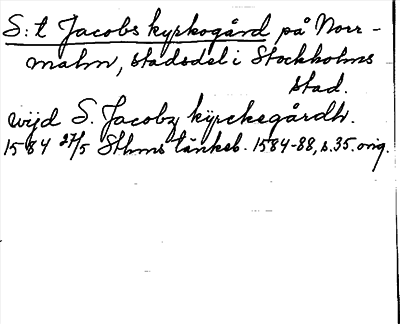 S:t Jacobs kyrkogård på Norr-
malm, stadsdel i Stockholms
stad.
wijd S. Jacobz kÿrckegårdh.
1584 27/5 Sthms tänkeb. 1584-88, s. 35. orig.